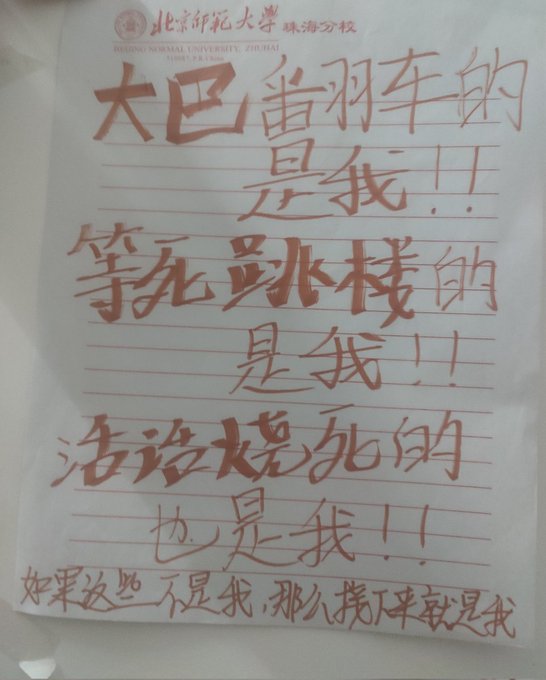 北京师范大学 珠海分校
BEIJING NORMAL UNIVERSITY, ZHUHAI
519087, P.R.China
大巴番羽车的
是我!!
等死跳楼的
是我!!
活活烧死的
也是我!!
如果这些不是我,那么接下来就是我